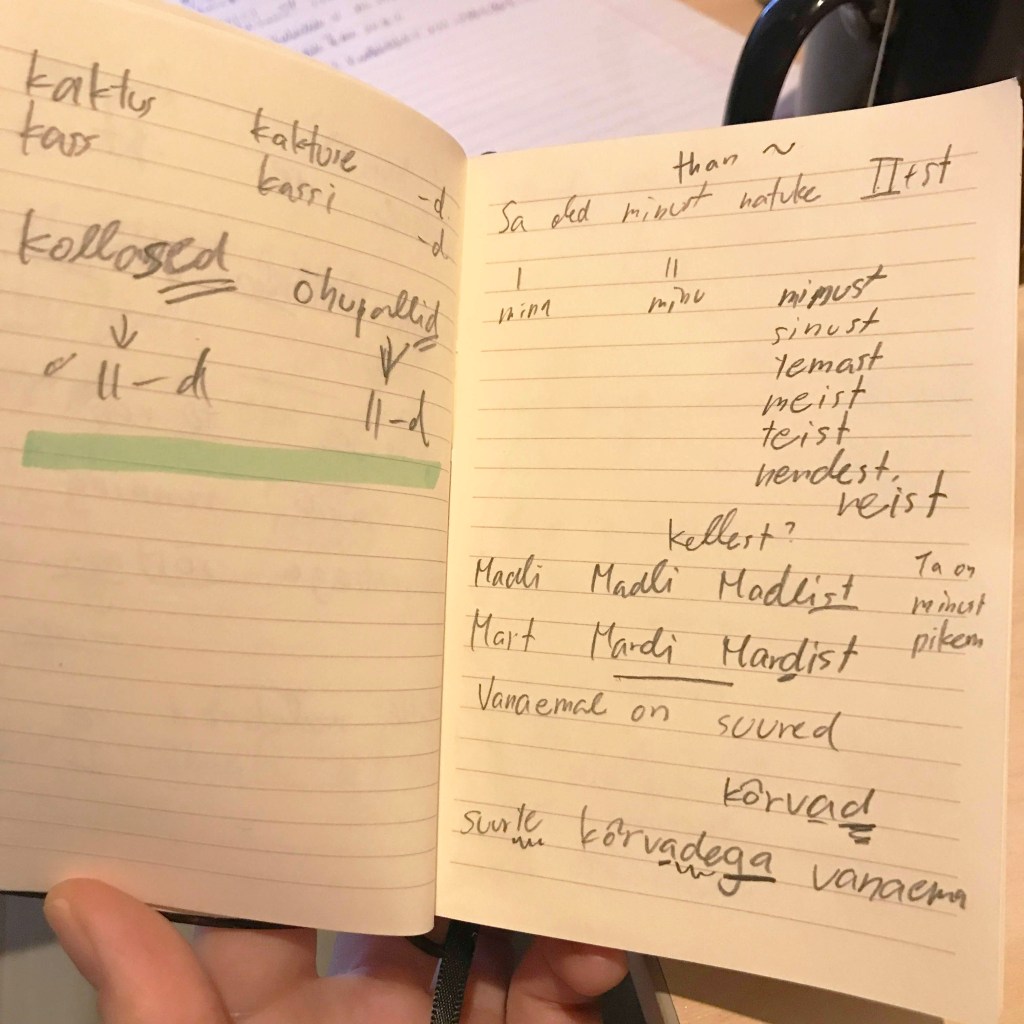 kaktus kakture -d.
kass kassi -d
kollosed
õhupallid
II-d
II-d
than ~
Sa oled minust natuke II+st
I II
mina minu minust
sinust
temast
meist
teist
nendest.
neist
kellest?
Madli Madli Madlist
Mart Mardi Mardist
Ta on
minust
pikem
Vanaemal on suured
kõrvad
suurte kõrvadega vanaema